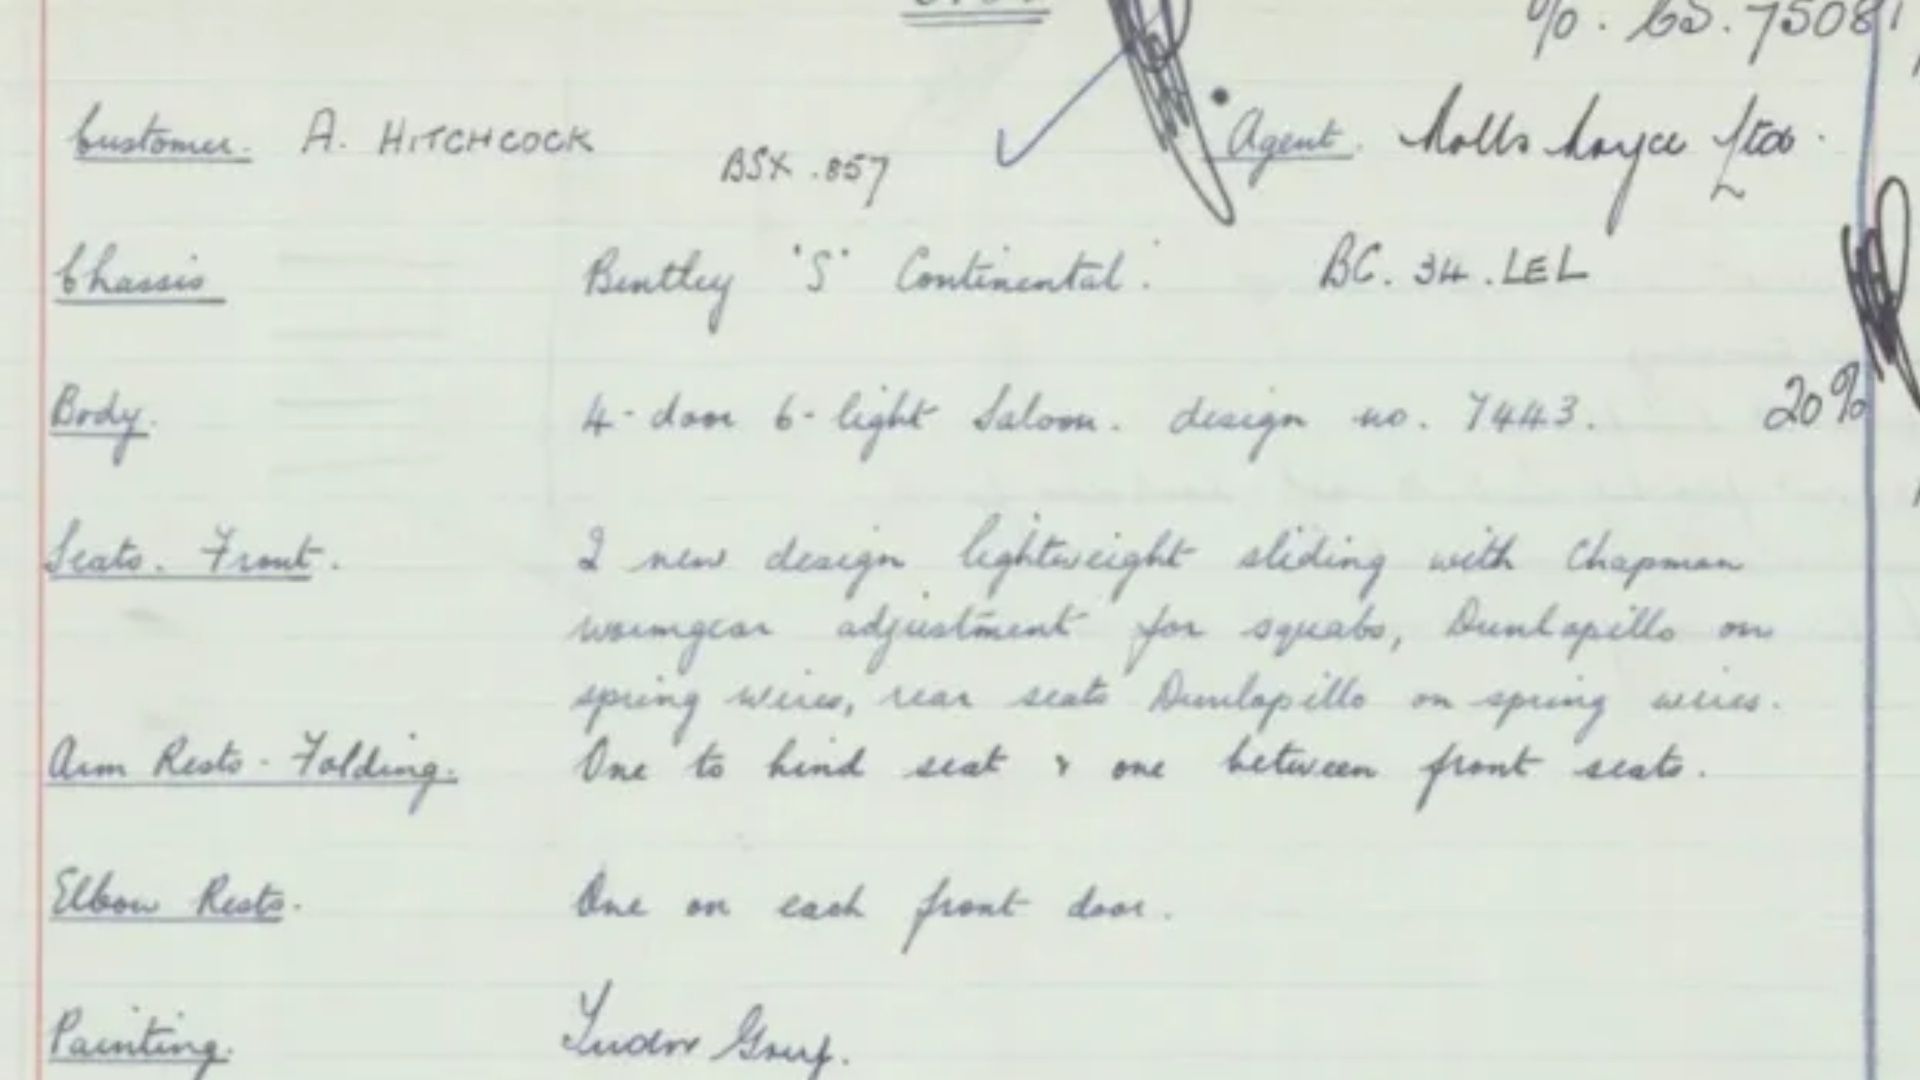 %. 63. 7508
Customer. A. HITCHCOCK
BSX .857
Agent. Rolls Royce Ltd.
Chassis Bentley 'S' Continental. BC. 34. LEL
Body. 4-door 6-light Saloon. design no. 7443. 20%
Seats. Front. 2 new design lightweight sliding with Chapman
wormgear adjustment for squabs, Dunlopillo on
spring wires, rear seats Dunlopillo on spring wires.
Arm Rests - Folding. One to hind seat & one between front seats.
Elbow Rests. One on each front door.
Painting. Tudor Grey.